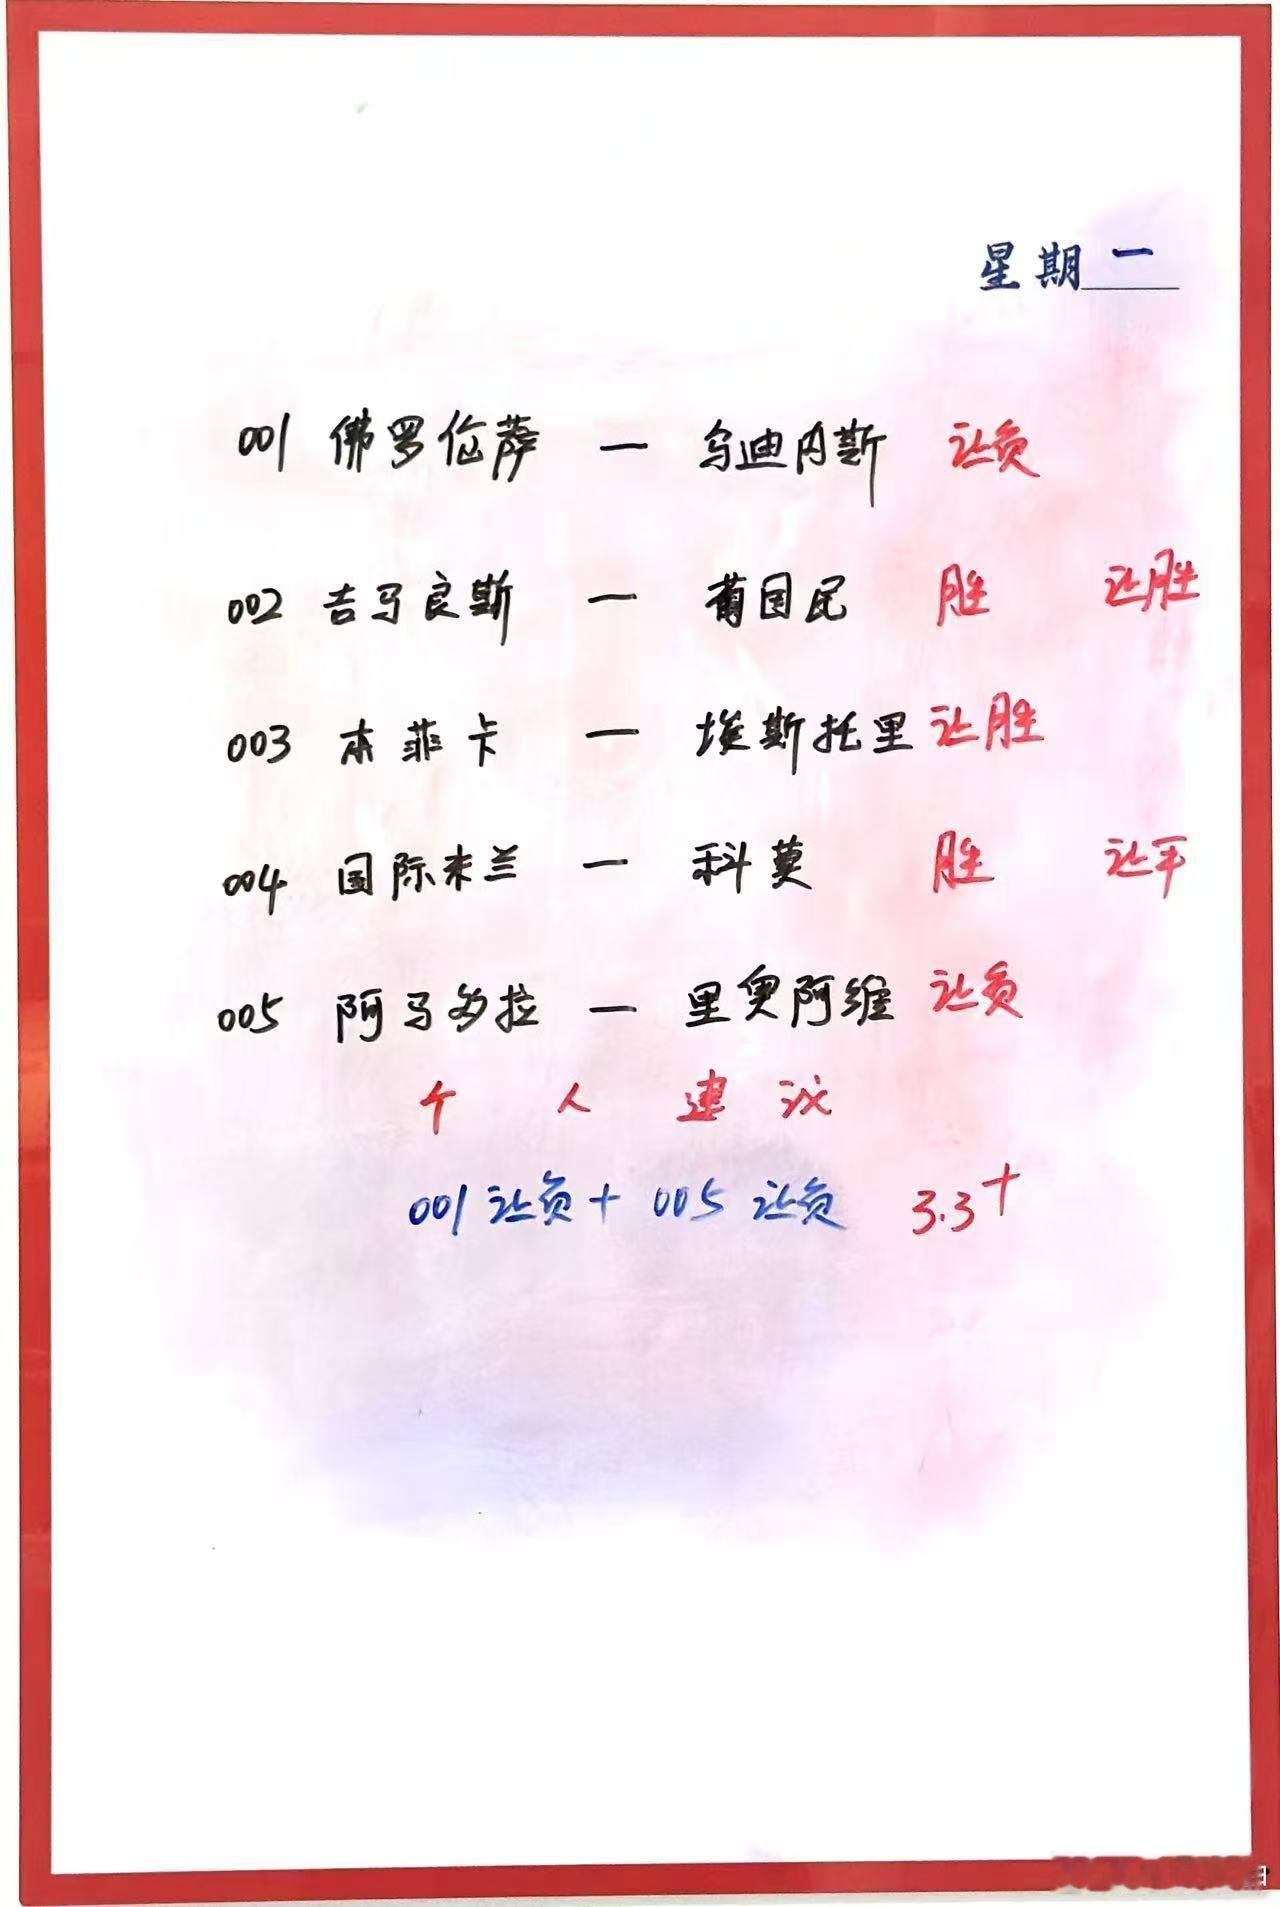 星期一
001 佛罗伦萨 — 乌迪内斯 让负
002 吉马良斯 — 葡国民 胜 让胜
003 本菲卡 — 埃斯托里 让胜
004 国际米兰 — 科莫 胜 让平
005 阿马多拉 — 里奥阿维 让负
个人建议
001 让负 + 005 让负 3.3+